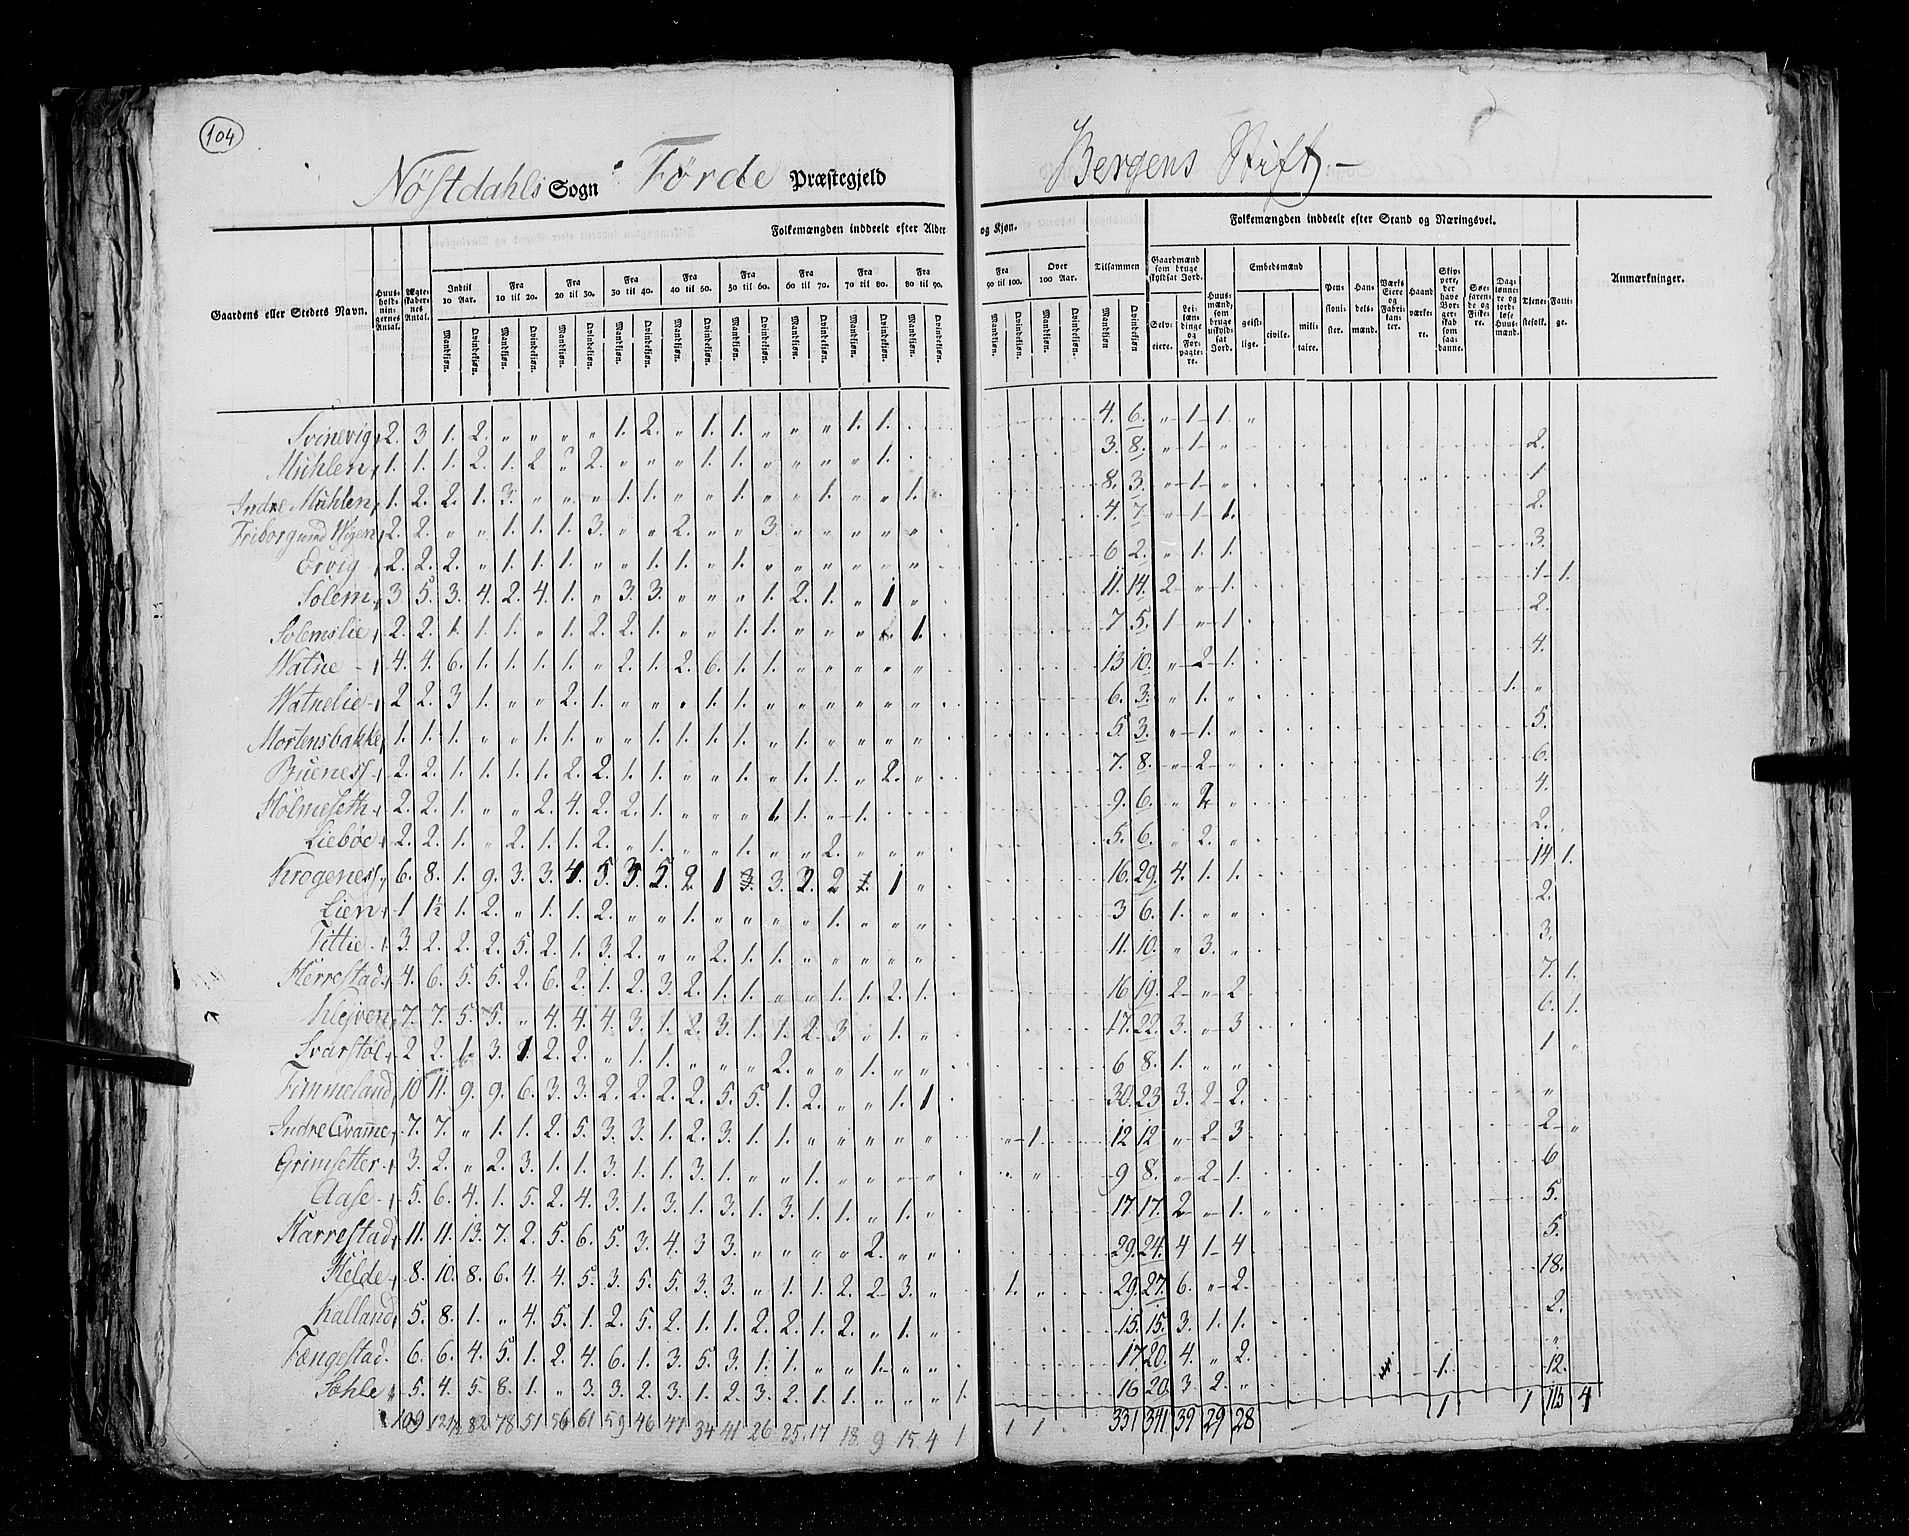 104
Nöstdahls Sogn Förde Præstegjeld
Bergens Stift
Gaardens eller Stedets Navn.
Huus-holdnin-gernes Antal.
Ægte-skaber-nes Antal.
Folkemængden inddeelt efter Alder og Kjøn.
Indtil 10 Aar. Fra 10 til 20. Fra 20 til 30. Fra 30 til 40. Fra 40 til 50. Fra 50 til 60. Fra 60 til 70. Fra 70 til 80. Fra 80 til 90. Fra 90 til 100. Over 100 Aar.
Mandkjøn. Qvindekjøn.
Tilsammen
Mandkjøn Qvindekjøn
Folkemængden inddeelt efter Stand og Næringsvei.
Gaardmænd som bruge skyldsat Jord.
Selv-eiere. Lei-læn-dinge og For-pagte-re.
Huus-mænd, som bruge uskyld-sat Jord.
Embedsmænd
geist-lige. civile. mili-taire.
Pen-sioni-ster.
Han-dels-mænd.
Værks Eiere og Fabri-kan-ter.
Haand værke-re.
Skip-pere, der have Bor-ger-skab som saa-danne.
Søe-faren-de og Fiske-re.
Dag-lønne-re og jord-løse Huus-mænd.
Tiene-stefolk.
Fatti-ge.
Anmærkninger.
Svinevig 2. 3 1. 2. „ „ „ „ 1. 2. „ 1. 1. „ „ „ 1. 1. 4. 6. „ 1 1. „
Mühlen 1. 1. 1. 2. 1. 2 „ 2. „ „ „ 1. 1. „ „ „ „ 1. 3. 8. „ 1 „ 2.
Indre Mühlen 1. 2. 2. 1. 3. „ „ „ 1. 1. „ „ 1. „ „ 1. „ „ 1. „ 8. 3. „ 1 „ 1
Friborg und Wigen 2. 2. „ „ 1. 1. 1. 3. „ „ 2. „ „ 3. „ „ „ „ „ 4. 7. „ 1 1. 2.
Ervig 2. 2. 2. „ 1. 1. 1. „ „ 1. 1. „ 1. „ „ „ „ „ „ 6 2. „ 1. 1. 3.
Solem 3. 5. 3. 4. 2. 4. 1. „ 3. 3. „ „ „ 1. 2. 1. „ 1 „ 11. 14. 2 „ 1. 1 1.
Solemslie 2. 2. 1. 1. 1. „ 1. 2. 2. 1. „ „ 1. 1. „ „ „ 1. 7 5. 1 „ 1. 2.
Watne 4. 4. 6. 1. 1. 1. 1. „ 2. 1. 2. 6. 1. 1. „ „ „ „ „ 13 10. „ 2 1. 4.
Watnelie 2 2. 3 1. „ „ 2. 1. „ „ „ 1. 1. „ „ „ „ „ „ 6. 3. „ 1. „ 1. „
Mortensbakke 1. 1. 1. „ „ 1. 1. „ „ 1. 1. 1. 1. „ 1. „ „ „ „ 5. 3. „ 1. „ 5.
Bueness 2. 2. 1. 1. 1. 1. 2. 2. 1. 1. „ „ 1. „ 1. 1. „ 2. „ 7. 8. „ 2 „ 6.
Holmeseth 2. 2. 1. „ „ 2. 4. 2. 2. 1. „ „ „ 1. 1. „ 1. 9. 6. „ 2 „ 4.
Lieböe 2. 2. 1. „ 2. 1. 1. 2. „ 1. „ „ 1. „ „ 2. „ „ „ 5. 6. „ 2. „ 2.
Krogeness 6. 8. 1. 9. 3. 3. 4. 5. 3. 5. 2. 1 3. 3. 2. 2 1. 1 „ 16. 29. 4. 1. 1. 14 1.
Lien 1 1½ 1. 2. „ 1. 1. 2. „ „ 1. „ „ „ „ 1. „ „ „ 3 6. 1. „ „ 2.
Tittie 3. 2. 2. 2. 5. 2. 1. 3. 2. „ „ 2. 1. 1. „ „ „ „ „ 11. 10. „ 3. „ 3.
Herrestad 4. 6. 5. 5. 2. 6. 2. 1. 2. 3. 2. 1. 1. „ „ 1. 1. 2. 1. 16 19. 2 „ 2. 7. 1.
Klejven 7. 7. 5. 5. „ 4. 4. 4. 3. 1. 2. 3. 1. 1. 2. 3 „ 1. „ 17. 22. 3. „ 3 6. 1.
Svarstöl 2 2. 1. 3. 1. 2. 2. „ 1. 1. „ „ „ 2. „ „ 1. „ „ 6 8. 1. „ „ 1 „
Fimmeland 10 11. 9. 9. 6. 3. 3. 2. 2. 2. 2. 5. 5. 1. 2. „ „ 1. 1 30. 23 3. 2 2. „
Indre Qvamme 7. 7. „ 1. 1. 2. 5. 3. 3. 1. 2. 3. 1. 1. „ „ „ „ „ „ 1. 12 12 „ 2 3 2 „
Grimsetter 3. 2. „ 2. 3. 1. 1. 3. 1. 1. 3. 1. „ „ 1. „ „ „ „ 9 8. „ 2 1. 6
Aase 5. 6. 4. 1. 5. 2. 4. 3. 1. 3. 1. 3. 1. 3. 1. 1. „ 1. „ 17 17. 2 „ 1. „ 5.
Harrestad 11. 11. 13. 7. 2. 5. 6. 5. 3. 4. 3 3. „ „ „ „ 2. „ „ 29. 24. 4 1 4. 5.
Helde 8. 10. 8. 6. 4. 4. 5. 3. 5. 5. 3. 3. „ 1. 1. 2. 2 3. „ 1. „ 29. 27. 6. „ 2. 18.
Kalland 5. 8. 1. „ 4. 5. 1. 2. 5. 2. 1. 1. 2. 2. 1. 2. „ 1. „ 15. 15. 3. 1. 1. 2.
Fængestad 6. 6. 4. 5. 1. 2. 4. 6. 1. 3. 5. 3. 1. 1. „ „ 1 „ „ 17 20. 4. „ 2. „
Sohle 5. 4. 5. 8. 1. „ 3. 3. 2. 3. 1. 2. 3. 2. 1. 1. „ „ „ 1. 16 20. 3 2. „ 1. 12.
109 121½ 82 78 51 56 61 59 46 47 34 41 26 25 17 18 9 15 4 1 1 1 331 341 39 29 28 1 1 115 4